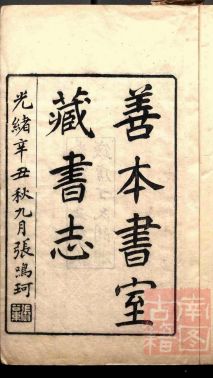 善本書室
藏書志
光緒辛丑秋九月張鳴珂
南图
古籍